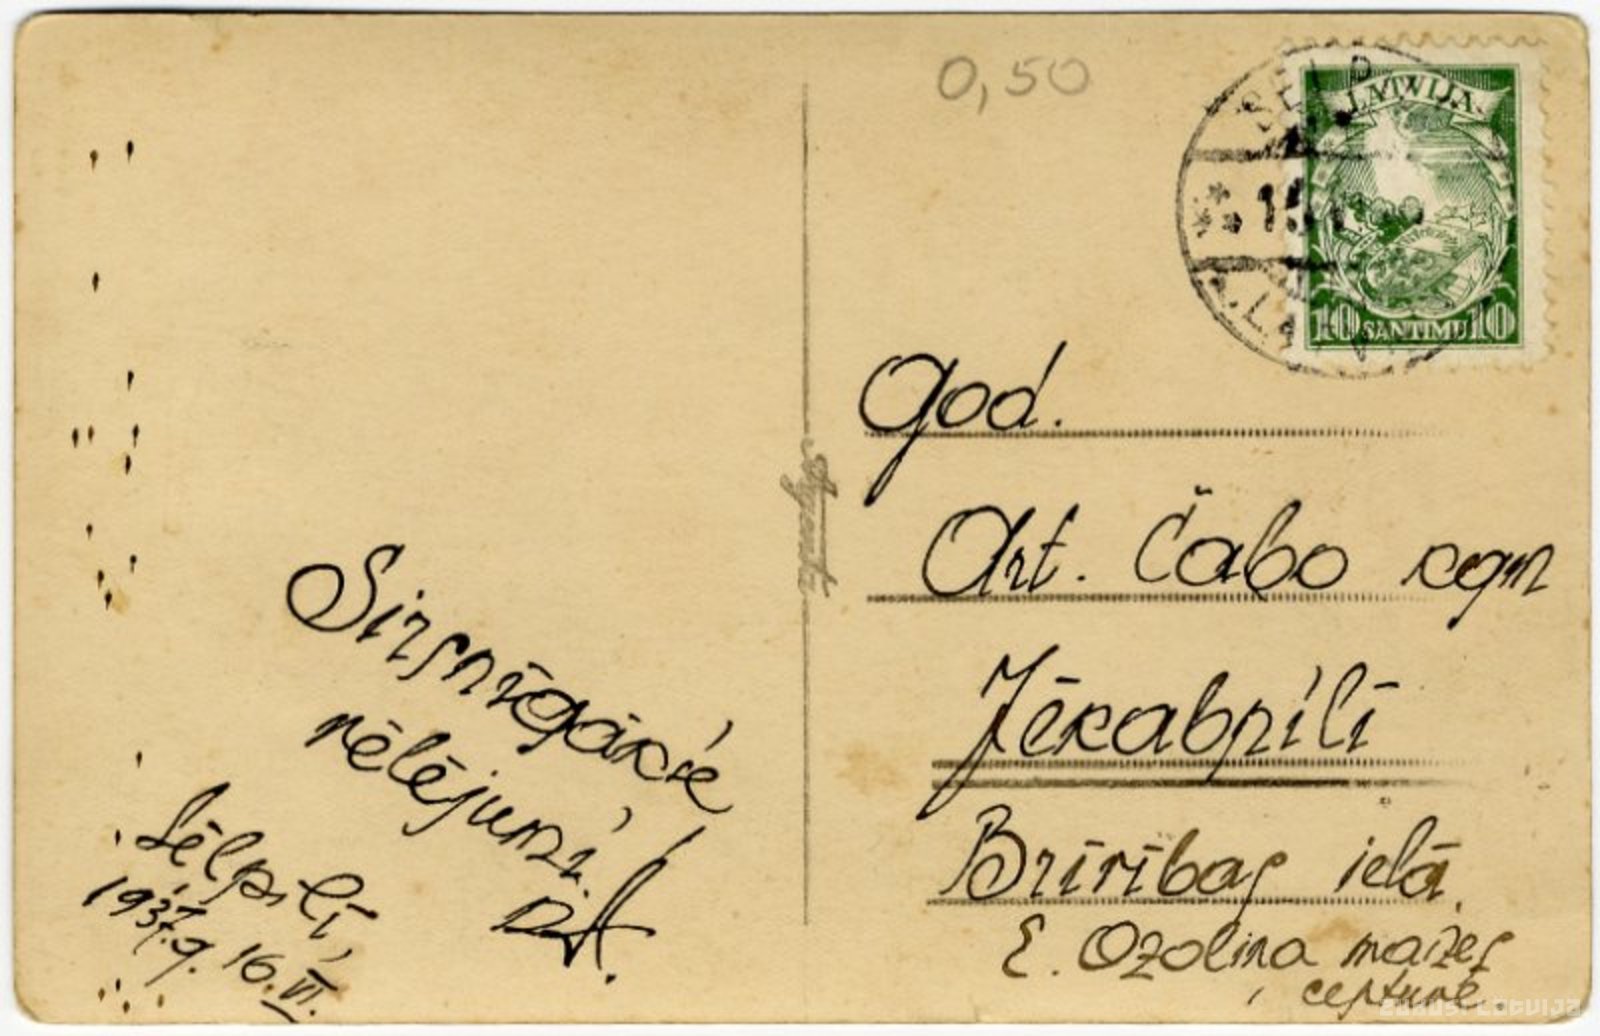 0,50
SELP
LATVIJA
10 SANTIMU 10
God.
Art. Čabo kgm
Jēkabpilī
Brīvības ielā
E. Ozoliņa maizes
ceptuvē
Sirsnīgākie
vēlējumi.
Sēlpilī,
1937.g. 16.VI.
zudusi latvija